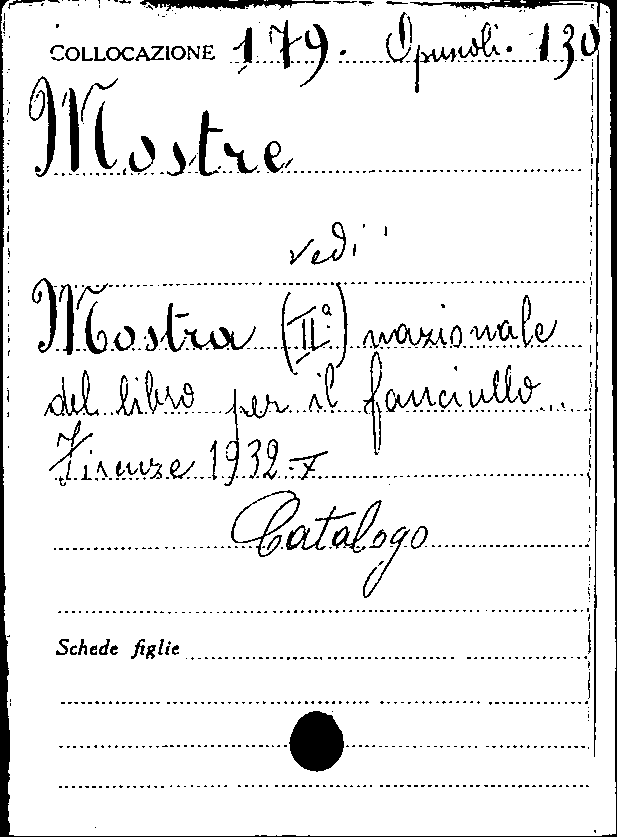 COLLOCAZIONE 179. Opuscoli. 130
Mostre
vedi
Mostra (IIª) nazionale
del libro per il fanciullo...
Firenze 1932-X
Catalogo
Schede figlie